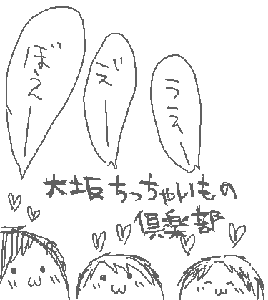 ぼえー
ゔぇー
うえー
大坂ちっちゃいもの
倶楽部